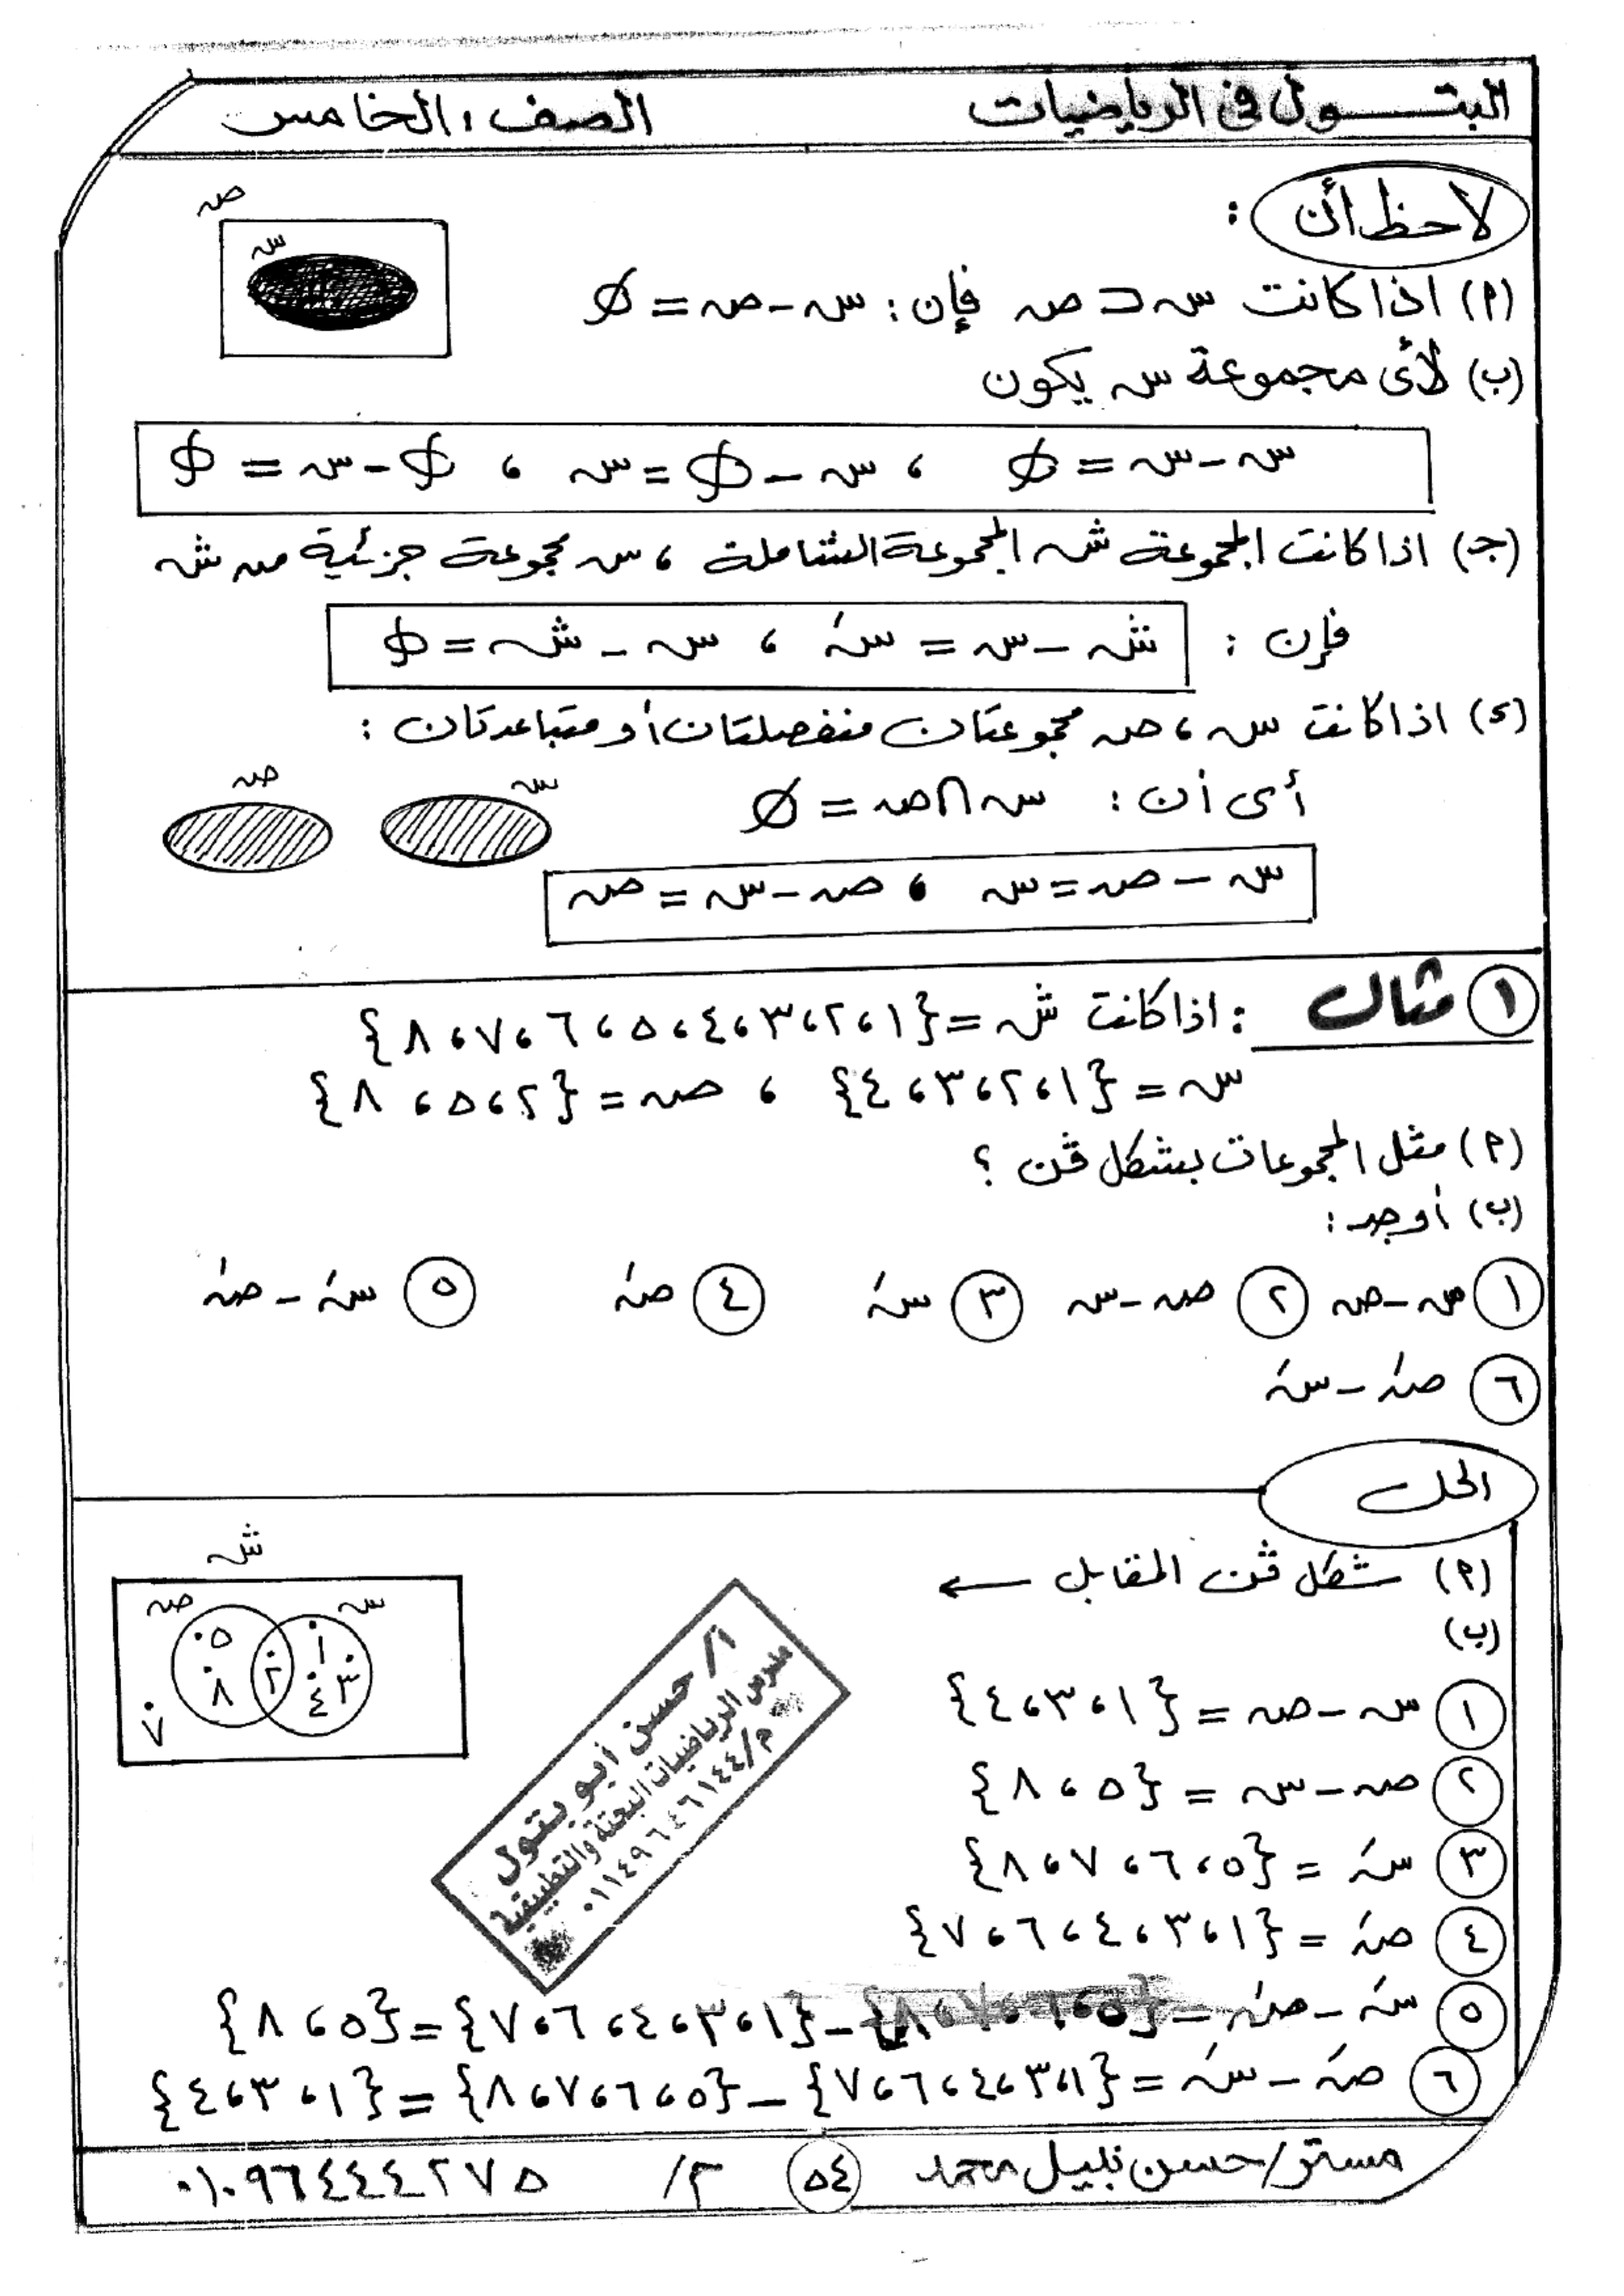 البتــــول فى الرياضيات الصف : الخامس
لاحظ أن :
(٢) اذا كانت س ⊂ ص فإن : س - ص = ∅
ص
س
(ب) لأى مجموعة س يكون
س - س = ∅ ، س - ∅ = س ، ∅ - س = ∅
(جـ) اذا كانت المجموعة ش المجموعة الشاملة ، س مجموعة جزئية من ش
فإن : ش - س = سَ ، س - ش = ∅
(د) اذا كانت س ، ص مجموعتان منفصلتان أو متباعدتان :
أى أن : س ∩ ص = ∅
س ص
س - ص = س ، ص - س = ص
١ مثال : اذا كانت ش = {١ ، ٢ ، ٣ ، ٤ ، ٥ ، ٦ ، ٧ ، ٨}
س = {١ ، ٢ ، ٣ ، ٤} ، ص = {٢ ، ٥ ، ٨}
(٢) مثل المجموعات بشكل ڤن ؟
(ب) أوجد :
١ س - ص ٢ ص - س ٣ سَ ٤ صَ ٥ سَ - صَ
٦ صَ - سَ
الحل
(٢) شكل ڤن المقابل ←
ش
س ص
١ ٣ ٤ ٢ ٥ ٨ ٧
(ب)
١ س - ص = {١ ، ٣ ، ٤}
٢ ص - س = {٥ ، ٨}
٣ سَ = {٥ ، ٦ ، ٧ ، ٨}
٤ صَ = {١ ، ٣ ، ٤ ، ٦ ، ٧}
٥ سَ - صَ = {٥ ، ٦ ، ٧ ، ٨} - {١ ، ٣ ، ٤ ، ٦ ، ٧} = {٥ ، ٨}
٦ صَ - سَ = {١ ، ٣ ، ٤ ، ٦ ، ٧} - {٥ ، ٦ ، ٧ ، ٨} = {١ ، ٣ ، ٤}
أ/ حسن أبو بتول
مدرس الرياضيات البحتة والتطبيقية
م/ ٠١١٤٩٦٤٦١٤٤
مستر/ حسن نبيل محمد ٥٤ م/ ٠١٠٩٦٤٤٤٢٧٥